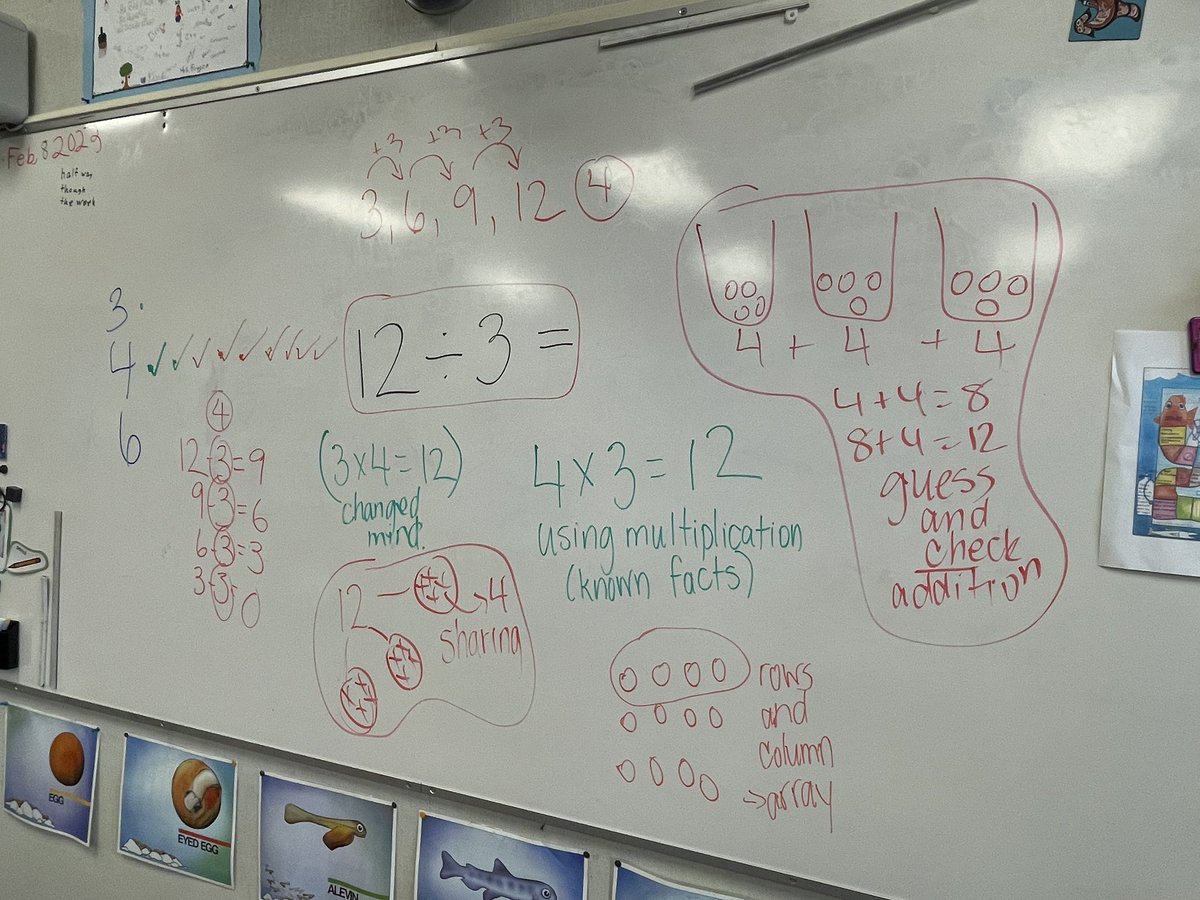 Feb, 8 2023
half way
though
the work
+3 +3 +3
3, 6, 9, 12 4
3.
4
6
12 ÷ 3 =
4
12-3=9
9-3=6
6-3=3
3-3=0
(3x4=12)
changed
mind.
4x3=12
using multiplication
(known facts)
12 4
sharing
4 + 4 + 4
4+4=8
8+4=12
guess
and
check
addition
rows
and
column
→array
EGG
EYED EGG
ALEVIN